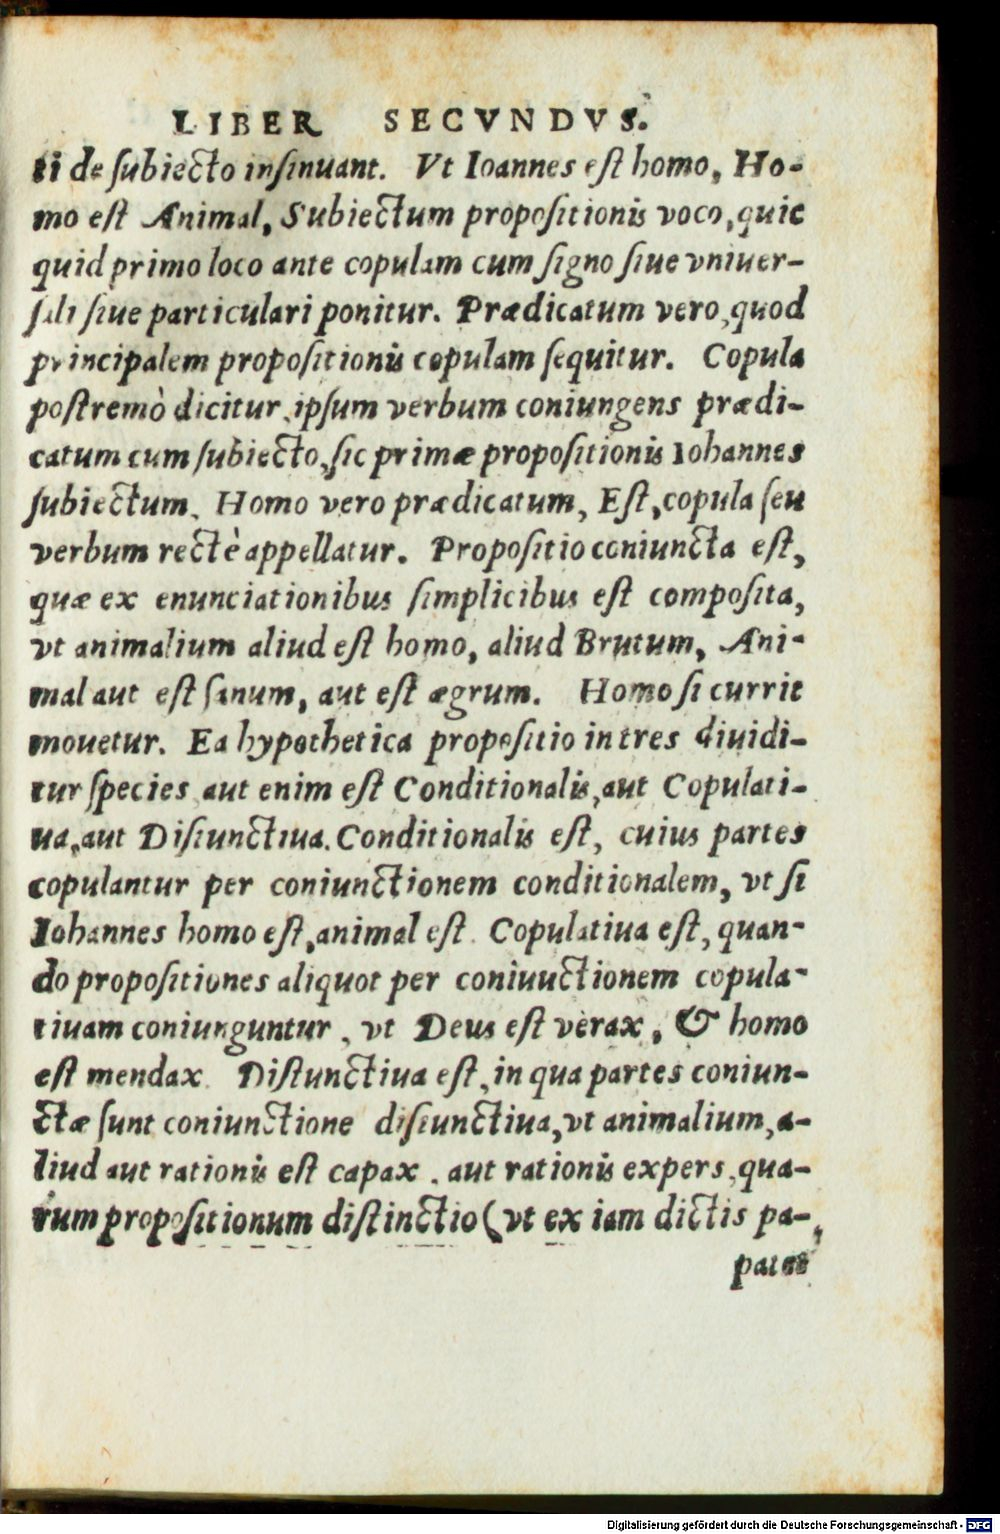 LIBER SECVNDVS.
ti de ſubiecto inſinuant. Vt Ioannes eſt homo, Ho-
mo eſt Animal, Subiectum propoſitionis voco, quic
quid primo loco ante copulam cum ſigno ſiue vniuer-
ſali ſiue particulari ponitur. Prædicatum vero, quod
principalem propoſitionis copulam ſequitur. Copula
poſtremò dicitur, ipſum verbum coniungens prædi-
catum cum ſubiecto, ſic primæ propoſitionis Iohannes
ſubiectum, Homo vero prædicatum, Eſt, copula ſeu
verbum rectè appellatur. Propoſitio coniuncta eſt,
quæ ex enunciationibus ſimplicibus eſt compoſita,
vt animalium aliud eſt homo, aliud Brutum, Ani-
mal aut eſt ſanum, aut eſt ægrum. Homo ſi currit
mouetur. Ea hypothetica propoſitio in tres diuidi-
tur ſpecies aut enim eſt Conditionalis, aut Copulati-
ua, aut Diſiunctiua. Conditionalis eſt, cuius partes
copulantur per coniunctionem conditionalem, vt ſi
Iohannes homo eſt, animal eſt. Copulatiua eſt, quan-
do propoſitiones aliquot per coniuuctionem copula-
tiuam coniunguntur, vt Deus eſt verax, & homo
eſt mendax. Diſtunctiua eſt, in qua partes coniun-
ctæ ſunt coniunctione diſiunctiua, vt animalium, a-
liud aut rationis eſt capax, aut rationis expers, qua-
rum propoſitionum diſtinctio (vt ex iam dictis pa-,
patet
Digitalisierung gefördert durch die Deutsche Forschungsgemeinschaft - DFG